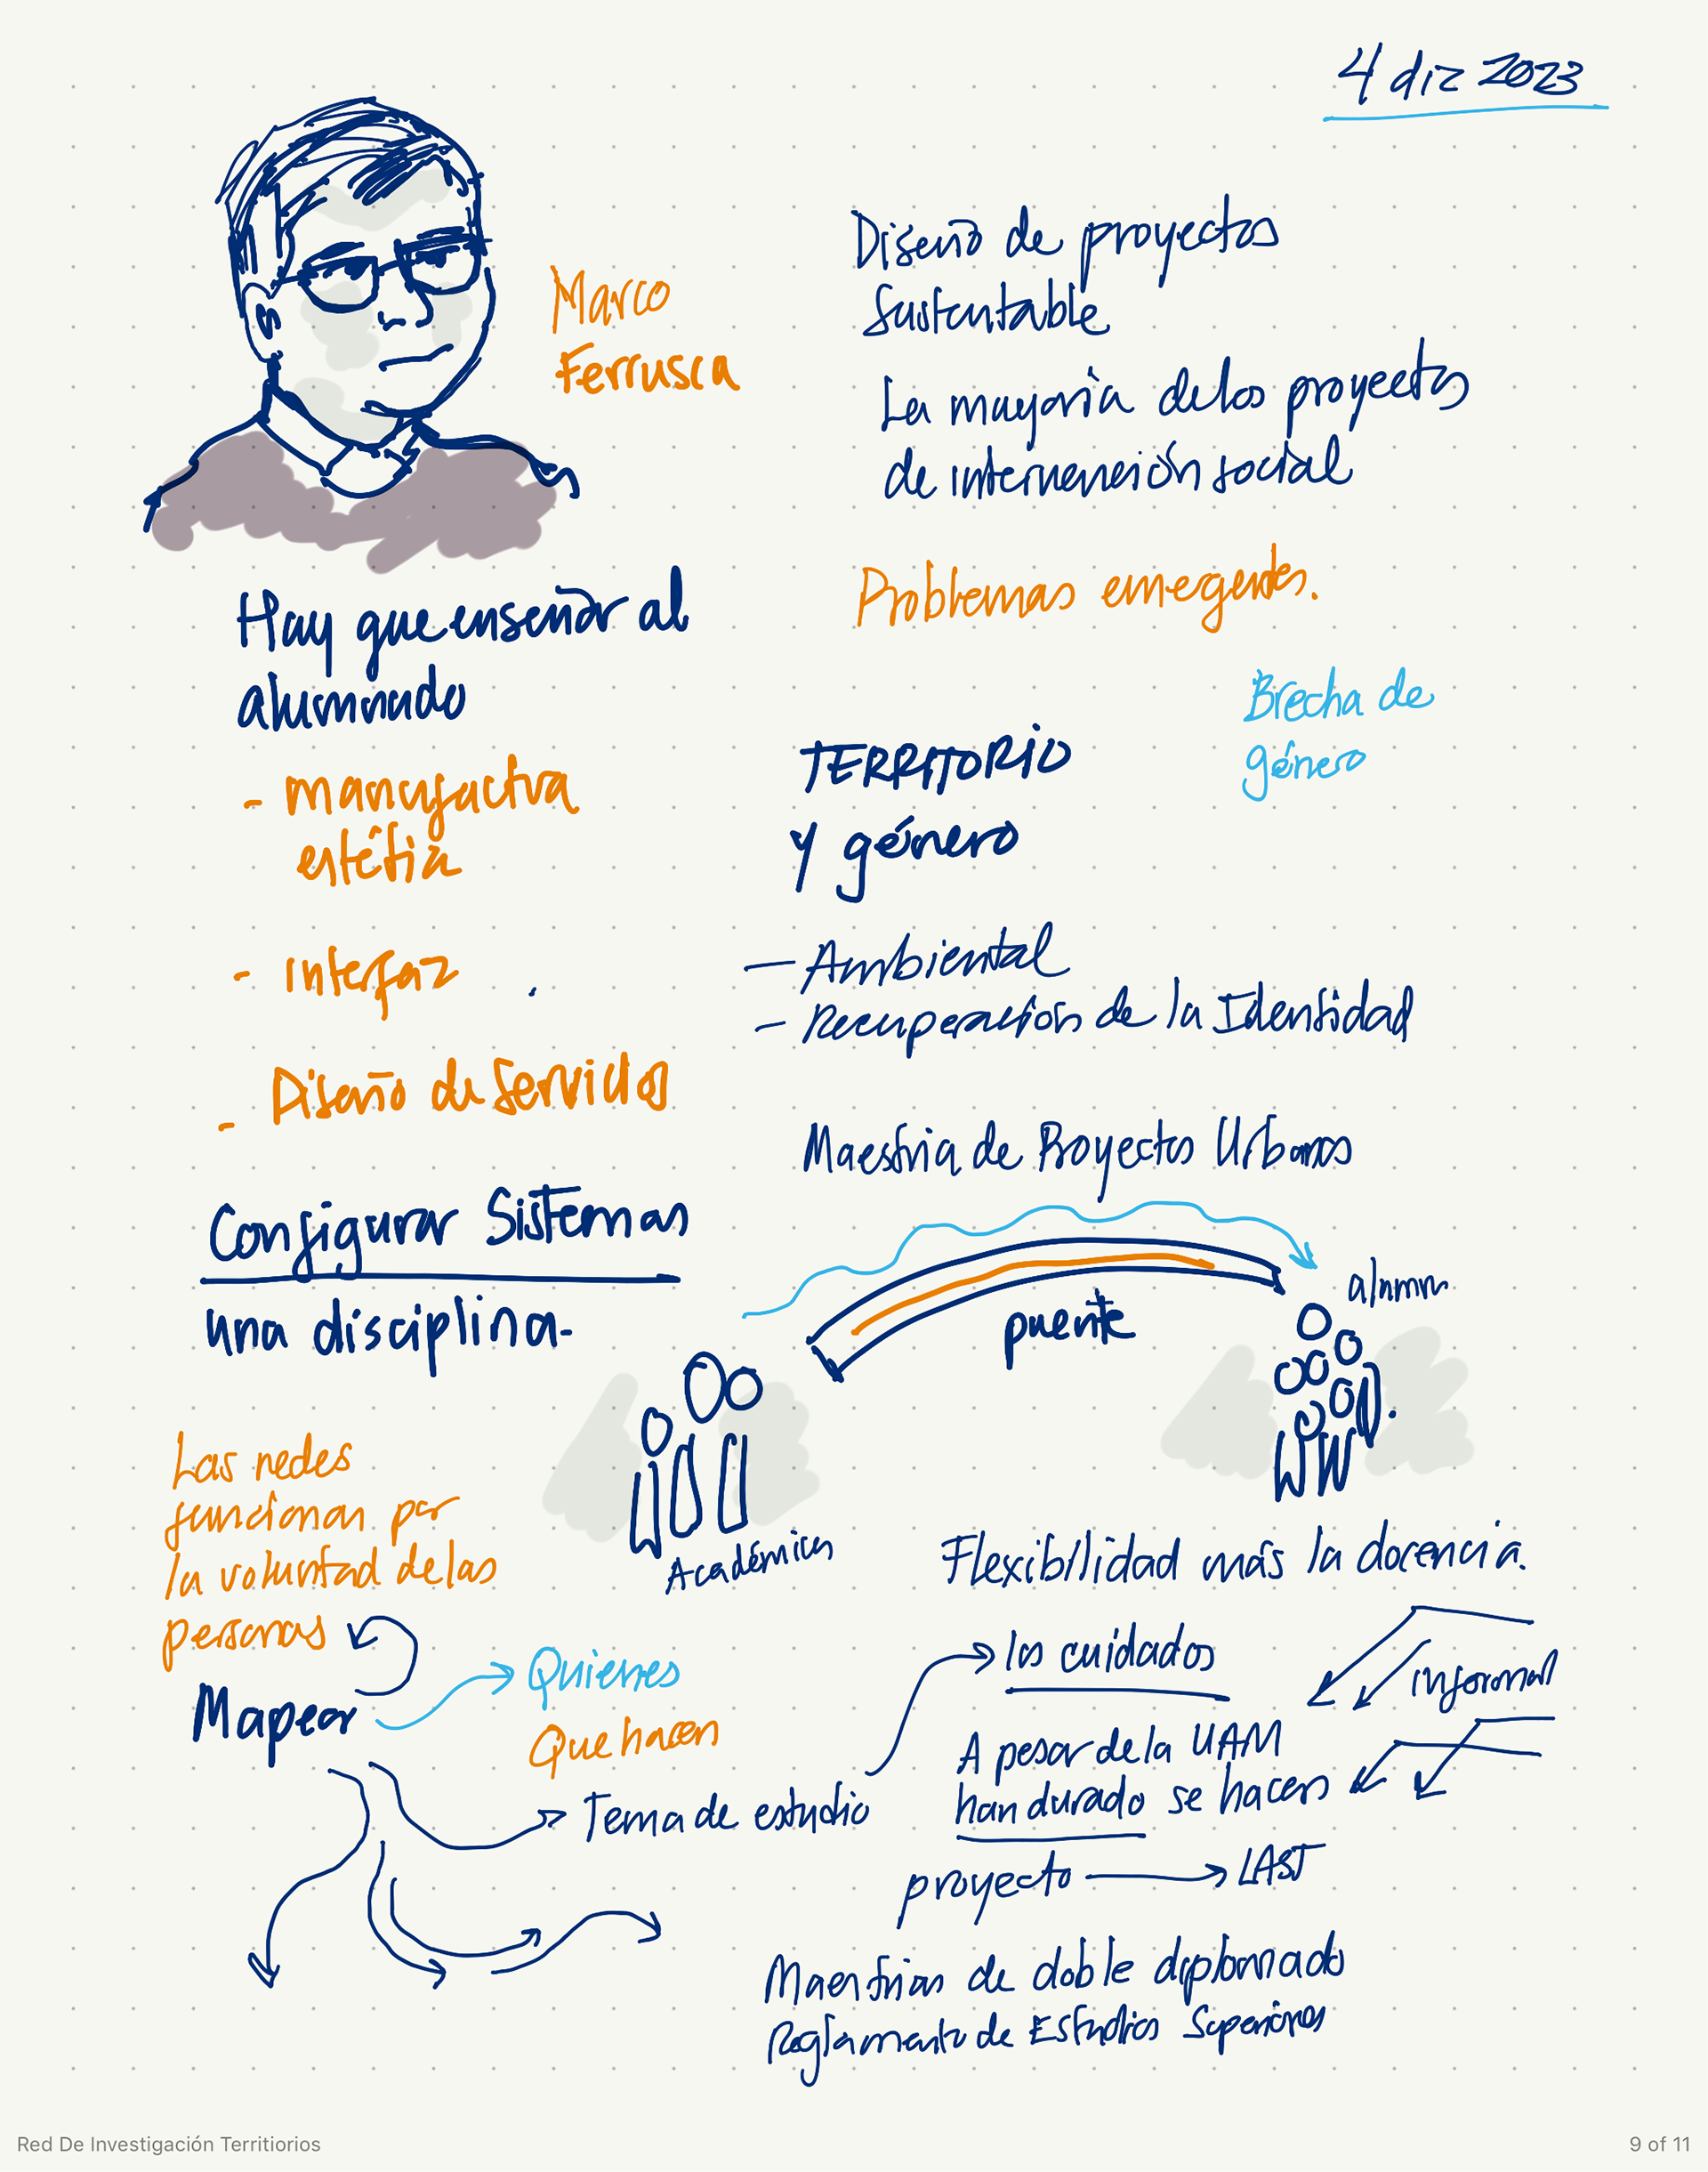 4 diz 2023
Marco
Ferrusca
Hay que enseñar al
alumnado
- manufactura
estética
- Interfaz
- Diseño de Servicios
Configurar Sistemas
una disciplina.
Las redes
funcionan por
la voluntad de las
personas
Mapear
Quienes
Que hacen
Tema de estudio
Diseño de proyectos
Sustentable
La mayoría de los proyectos
de intervención social
Problemas emergentes.
Brecha de
género
TERRITORIO
y género
- Ambiental
- Recuperación de la Identidad
Maestria de Proyectos Urbanos
puente
alumn
Académicos
Flexibilidad más la docencia.
los cuidados
informal
A pesar de la UAM
han durado se hacen
proyecto → LAST
Maestrias de doble diplomado
Reglamento de Estudios Superiores
Red De Investigación Territiorios
9 of 11